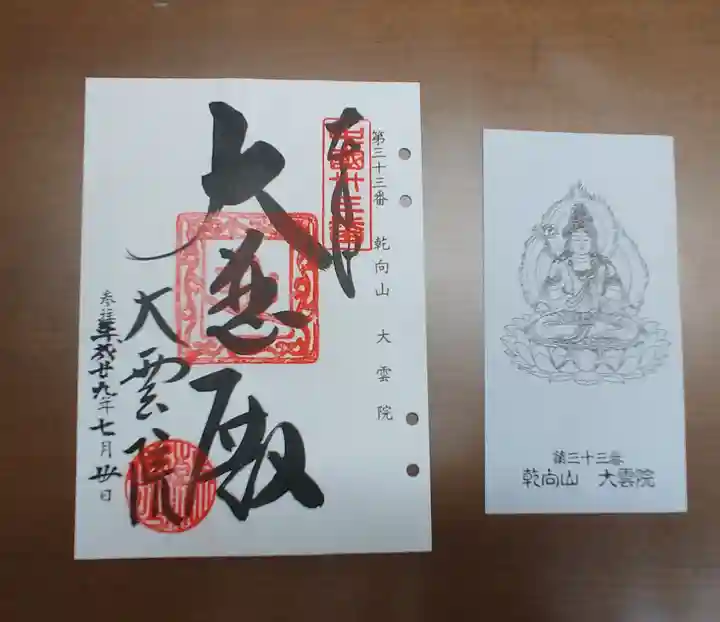 奉拝
中国卅三番
第三十三番 乾向山 大雲院
大悲殿
大雲院
参拝 平成廿九年七月廿日
第三十三番
乾向山 大雲院